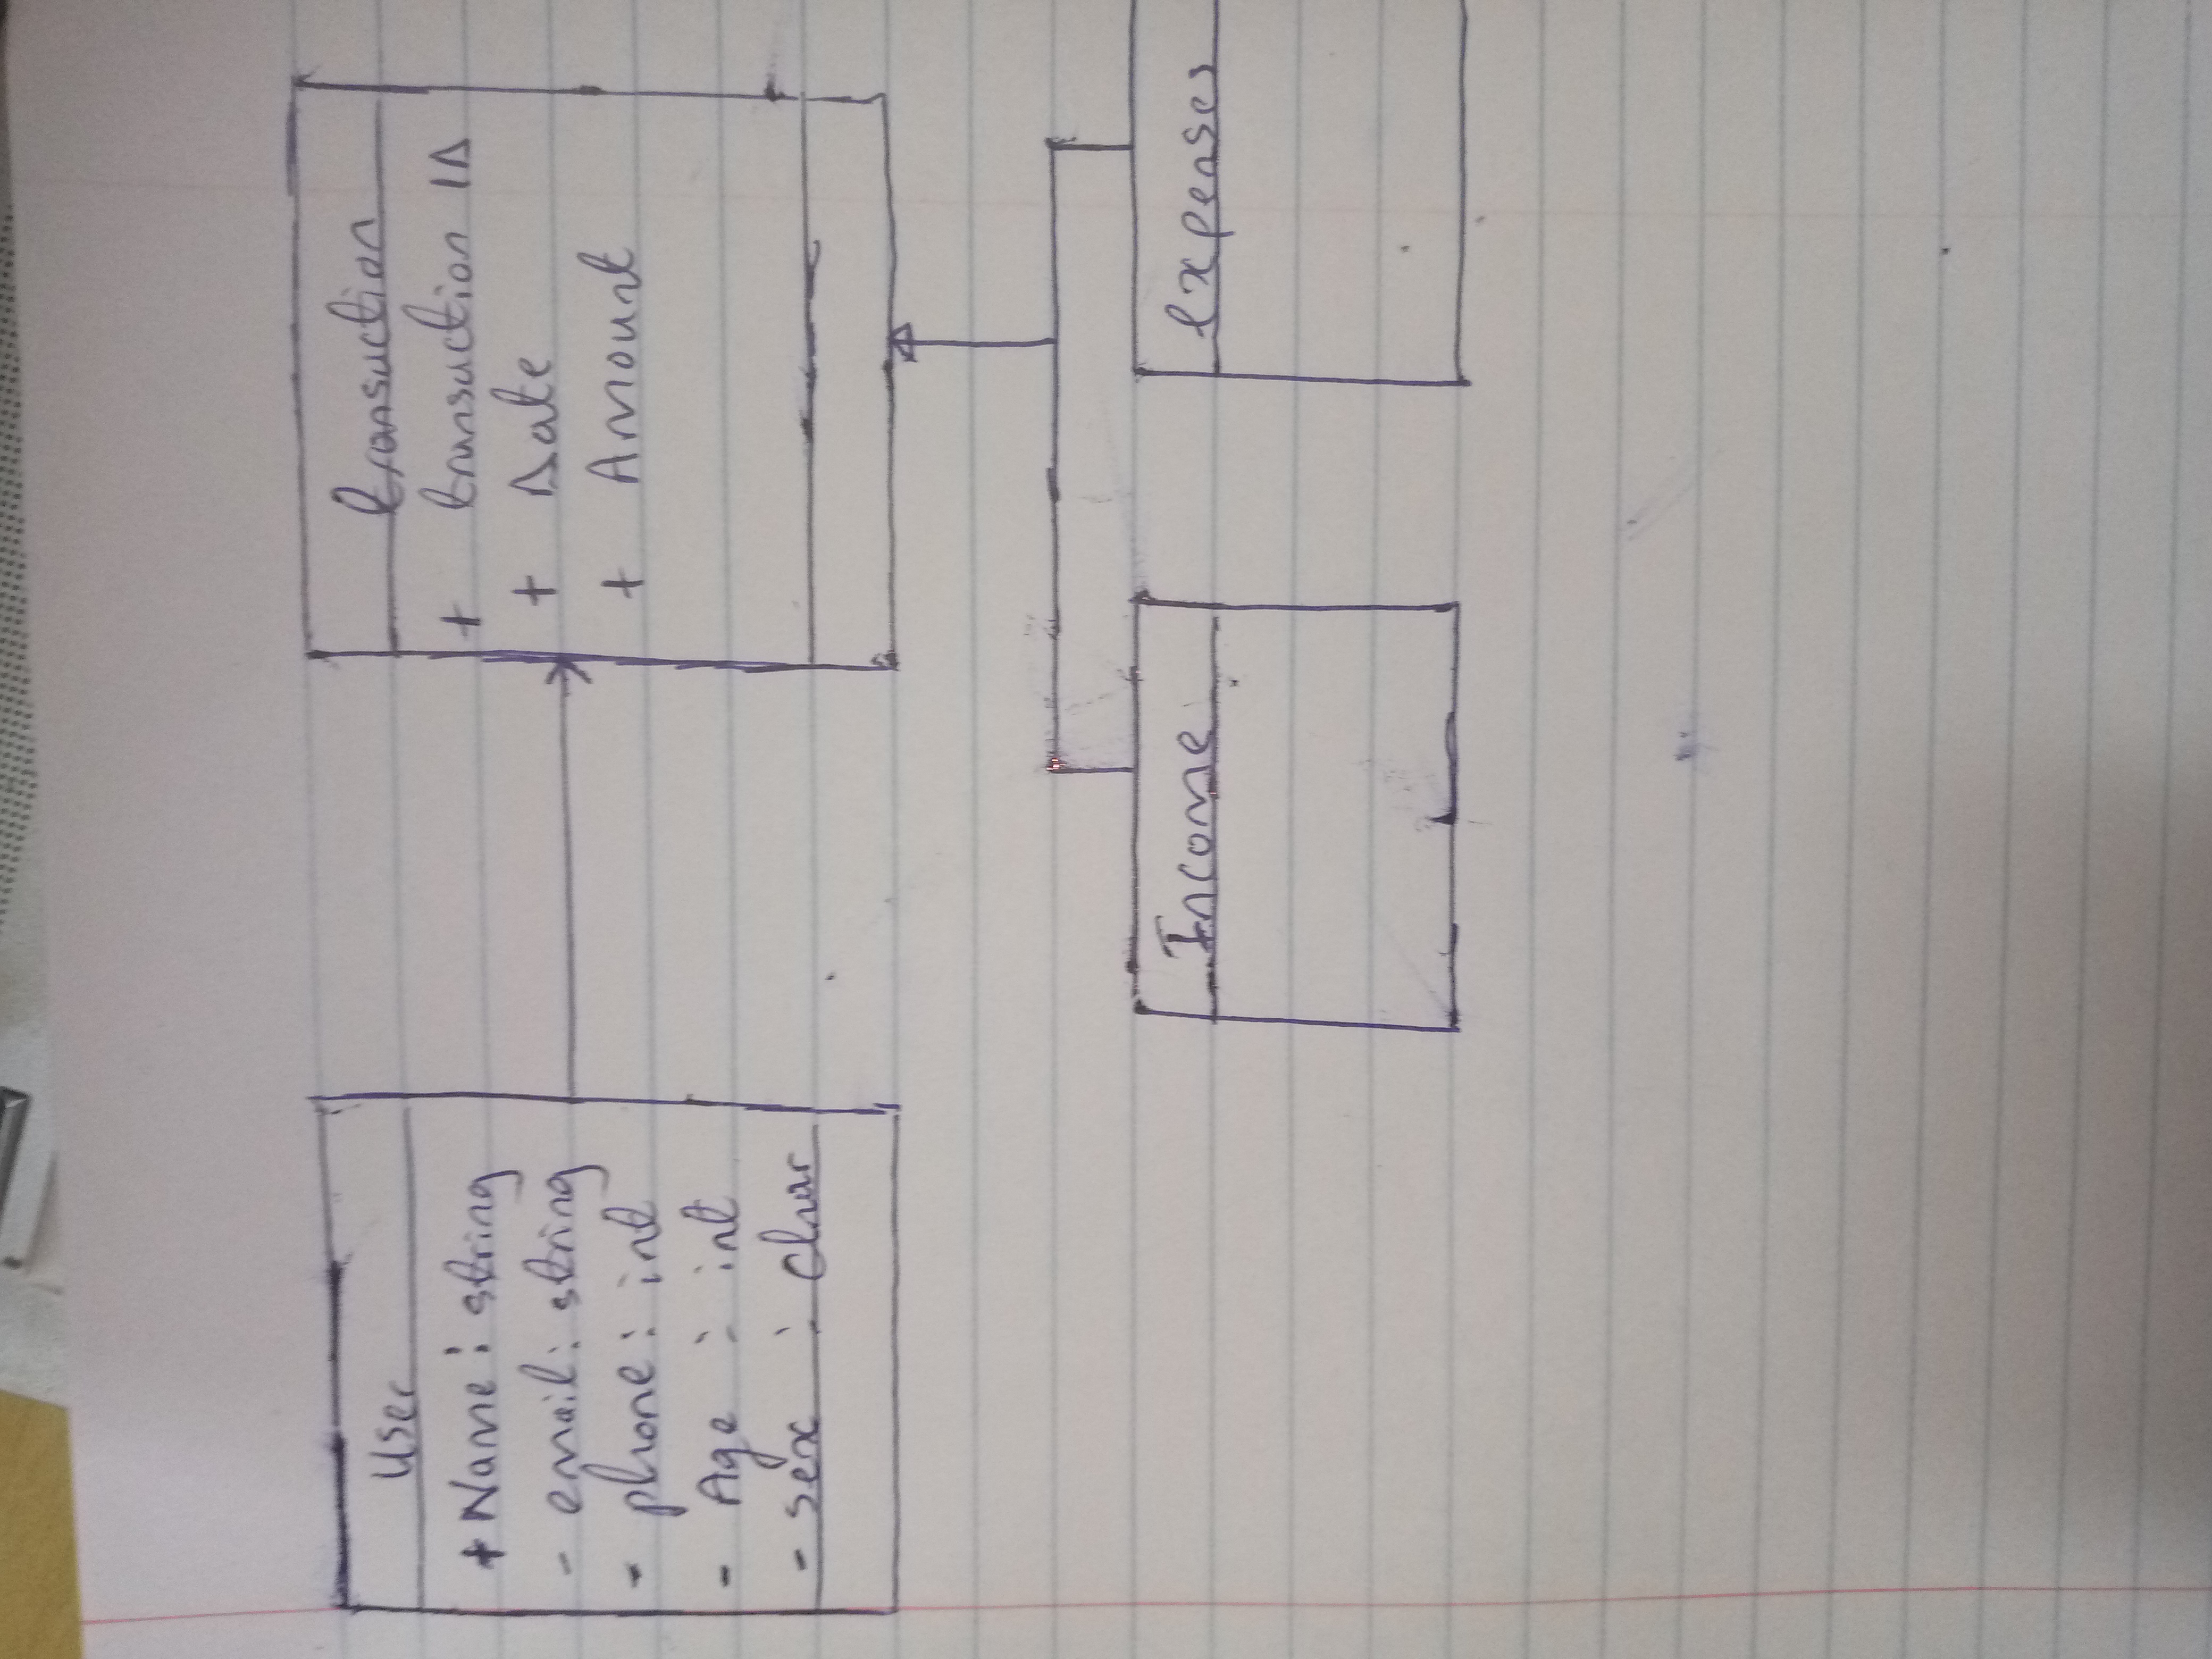 User
+ Name : string
- email : string
- phone : int
- Age : int
- sex : char
transuction
+ transuction ID
+ Date
+ Amount
Income
expenses